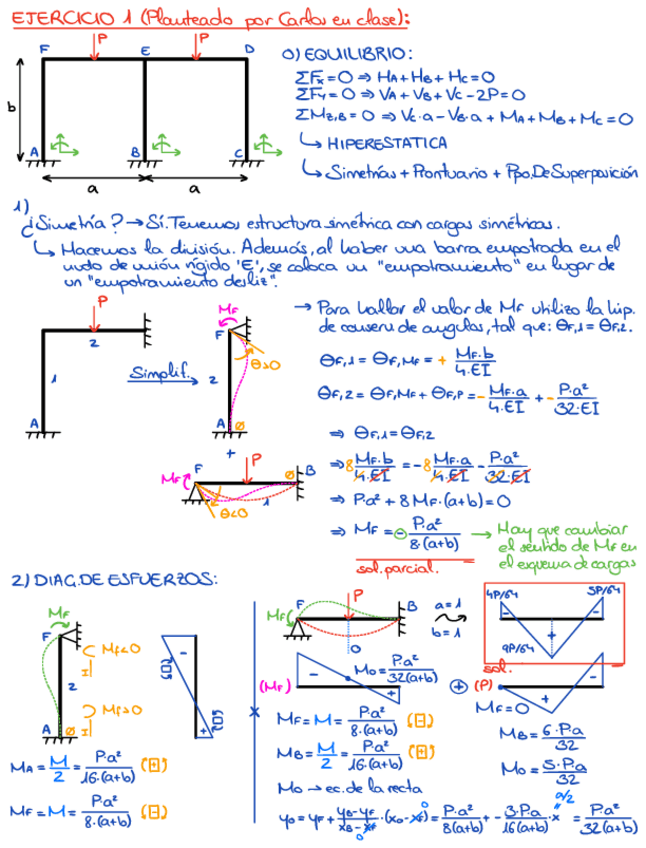 EJERCICIO 1 (Planteado por Carlos en clase):
P P
F E D
b
A B C
a a
0) EQUILIBRIO:
ΣFx=0 ⇒ HA+HB+HC=0
ΣFy=0 ⇒ VA+VB+VC-2P=0
ΣMz,B=0 ⇒ VC·a-VB·a+MA+MB+MC=0
↳ HIPERESTATICA
↳ Simetrías + Prontuario + Ppo.De Superposición
1)
¿Simetría? → Sí. Tenemos estructura simétrica con cargas simétricas.
↳ Hacemos la división. Además, al haber una barra empotrada en el
nudo de unión rígido 'E', se coloca un "empotramiento" en lugar de
un "empotramiento desliz".
P
2
1
A
Simplif.
MF
F
θ>0
2
A ∅
+
MF F P ∅ B
θ<0 1
→ Para hallar el valor de MF utilizo la hip.
de conserv. de angulos, tal que: θF,1=θF,2.
θF,1 = θF,MF = + MF·b/4·EI
θF,2 = θF,MF + θF,P = - MF·a/4·EI + - P·a²/32·EI
⇒ θF,1=θF,2
⇒ 8 MF·b/4·EI = -8 MF·a/4·EI - P·a²/32·EI
⇒ P·a² + 8MF·(a+b)=0
⇒ MF = - P·a²/8·(a+b) → Hay que cambiar
el sentido de MF en
el esquema de cargas
sol.parcial.
2) DIAG.DE ESFUERZOS:
MF
F
MF<0
2
MF>0
A ∅
-
+
MA = M/2 = P·a²/16·(a+b) (+)
MF = M = P·a²/8·(a+b) (-)
MF F P B
0
a=1
b=1
4P/64 5P/64
- + -
9P/64
sol.
(MF) - + M0 = P·a²/32(a+b)
+ (P) + -
MF=0
x
MF = M = P·a²/8·(a+b) (-)
MB = M/2 = P·a²/16·(a+b) (+)
MB = 6·P·a/32
M0 = 5·P·a/32
M0 → ec. de la recta
y0 = yF + yB-yF/xB-xF·(x0-xF) = P·a²/8(a+b) + - 3·P·a/16(a+b)·x = P·a²/32(a+b)
0 0 a/2